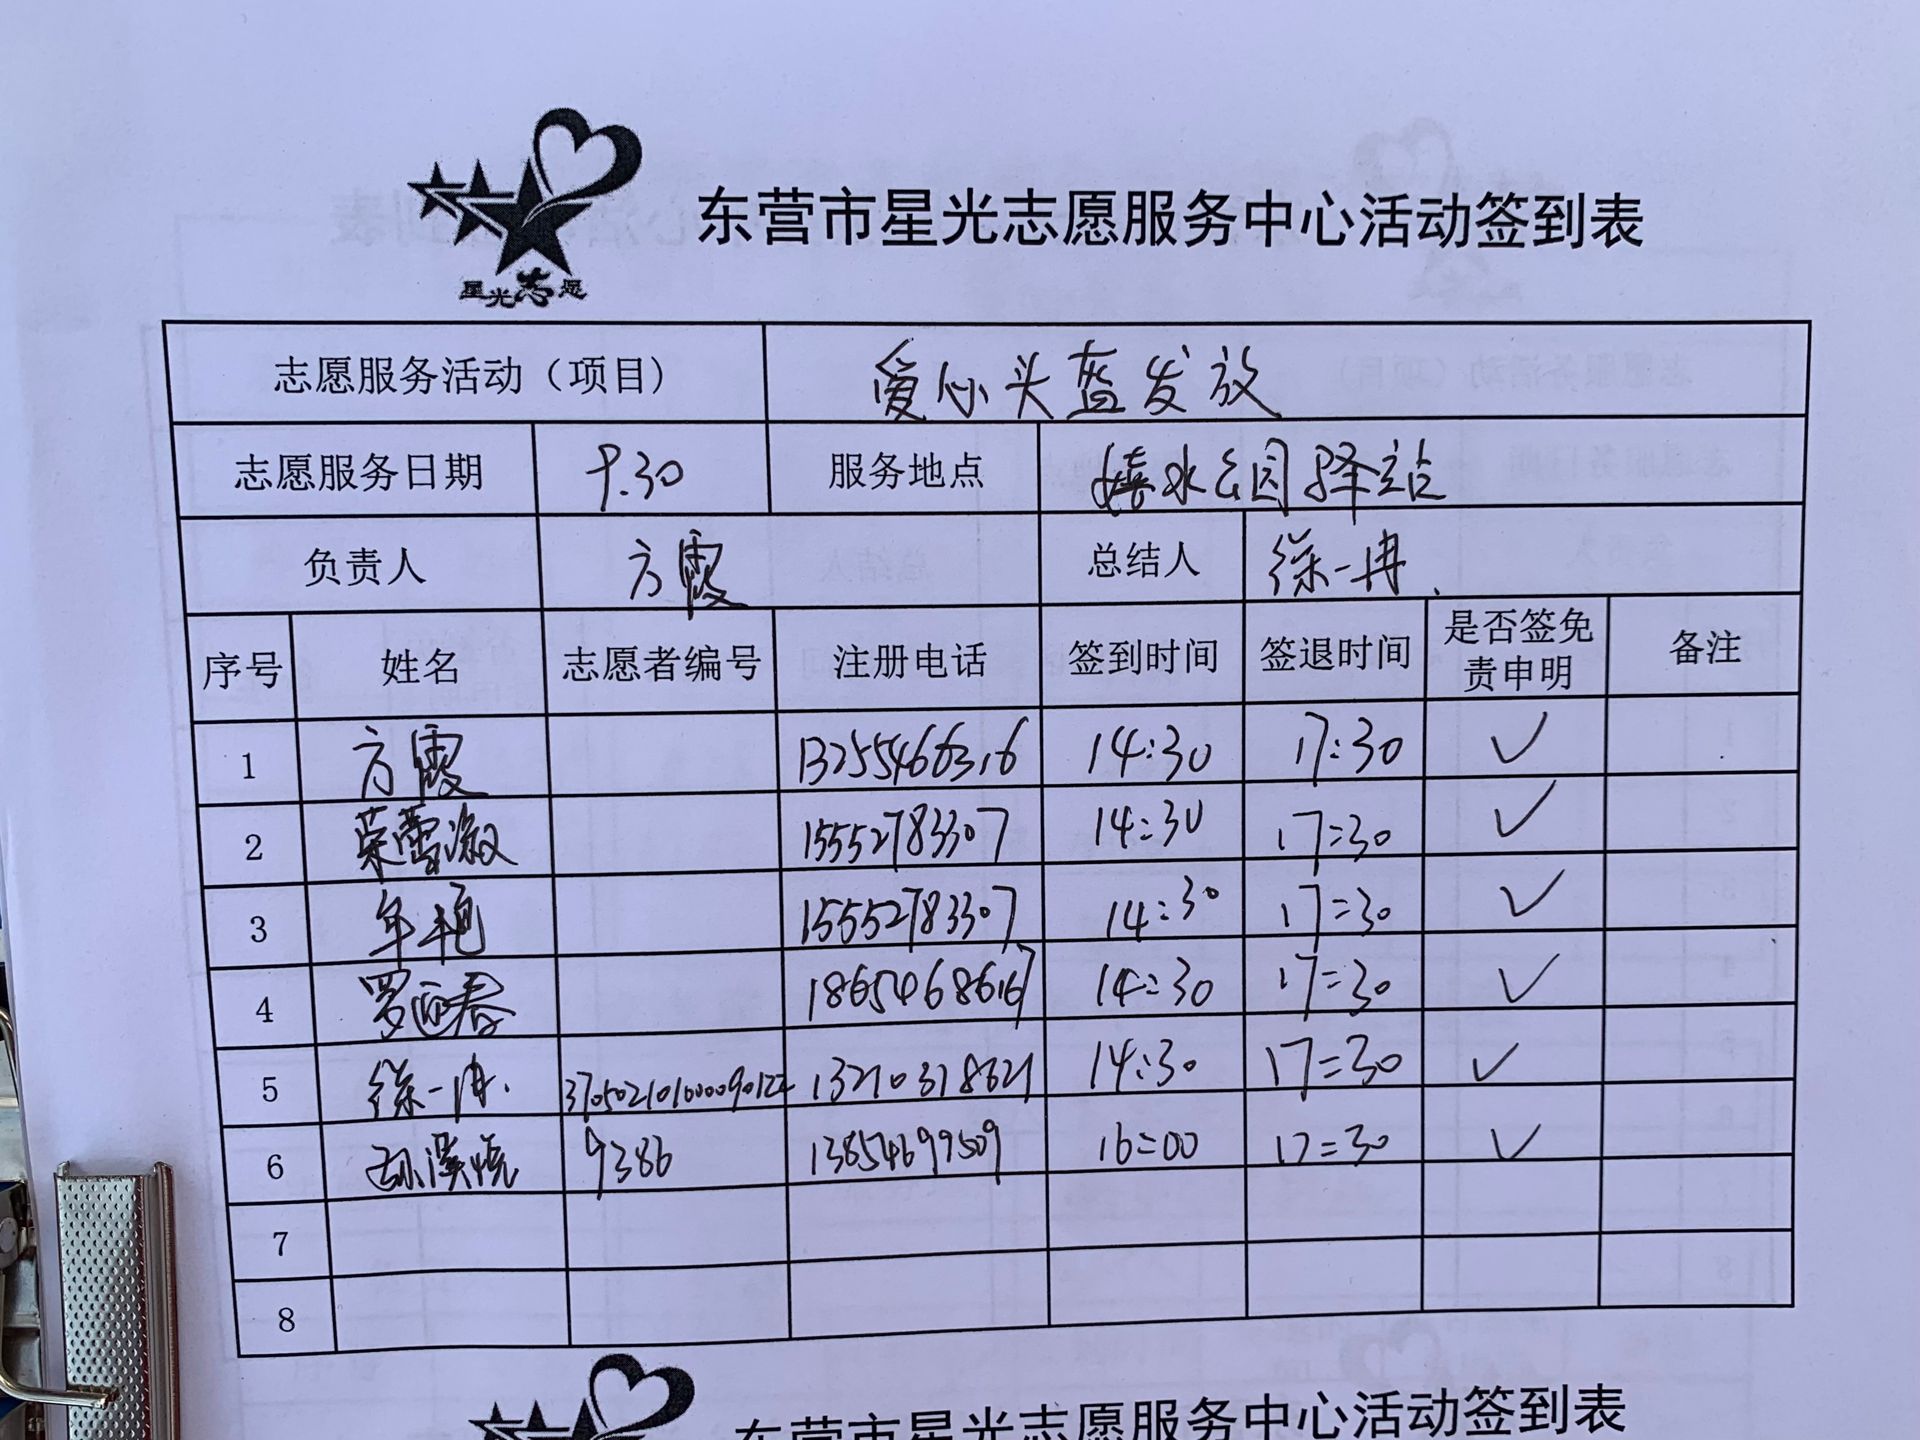 星光志愿
东营市星光志愿服务中心活动签到表
志愿服务活动（项目） 爱心头盔发放
志愿服务日期 9.30 服务地点 嬉水公园驿站
负责人 方霞 总结人 徐一冉.
序号 姓名 志愿者编号 注册电话 签到时间 签退时间 是否签免责申明 备注
1 方霞 13255466316 14:30 17:30 ✓
2 荣蕾溆 15552783307 14:30 17:30 ✓
3 车艳 15552783307 14:30 17:30 ✓
4 罗丽春 18654686167 14:30 17:30 ✓
5 徐一冉. 13210318621 14:30 17:30 ✓
6 孙溪悦 9386 13854699509 16:00 17:30 ✓
7
8
东营市星光志愿服务中心活动签到表